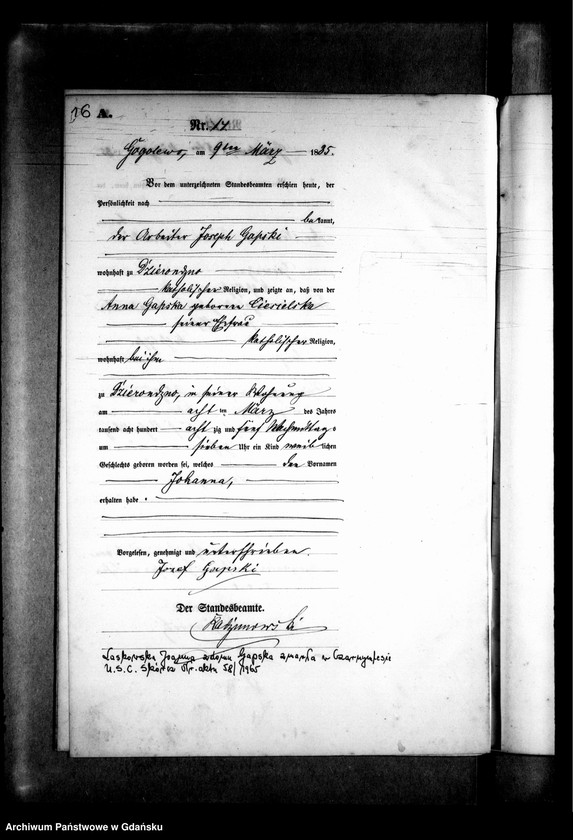 16 A.
Nr. 17
Gogolewo, am 9ten März 1885.
Vor dem unterzeichneten Standesbeamten erschien heute, der
Persönlichkeit nach
bekannt,
der Arbeiter Joseph Gapski
wohnhaft zu Dzierondzno
katholischer Religion, und zeigte an, daß von der
Anna Gapska geborene Ciesielska
seiner Ehefrau
katholischer Religion,
wohnhaft bei ihm
zu Dzierondzno, in seiner Wohnung
am acht ten März des Jahres
tausend acht hundert acht zig und fünf Nachmittags
um sieben Uhr ein Kind weib lichen
Geschlechts geboren worden sei, welches den Vornamen
Johanna,
erhalten habe.
Vorgelesen, genehmigt und unterschrieben.
Josef Gapski
Der Standesbeamte.
Laskowska Joanna z domu Gapska zmarła w Czarnymlesie
U.S.C. Skórcz Nr. aktu 58/1965
Archiwum Państwowe w Gdańsku